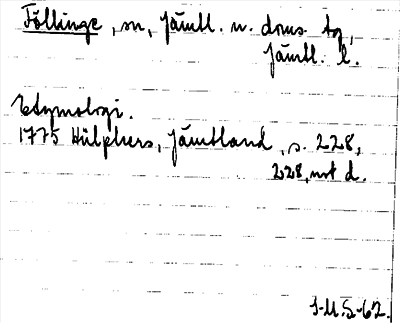 Föllinge, sn, Jämtl. n. doms. tg,
Jämtl. l.
Etymologi.
1775 Hülphers, Jämtland, s. 228,
228, not d.
J-U.S-62.